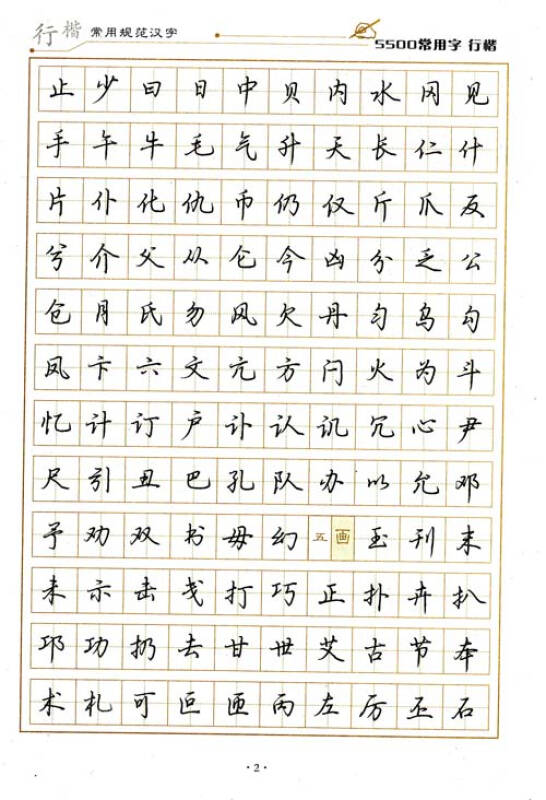 行楷 常用规范汉字
5500常用字 行楷
止少曰日中贝内水冈见
手午牛毛气升夭长仁什
片仆化仇币仍仅斤爪反
兮介父从仑今凶分乏公
仓月氏勿风欠丹匀乌勾
凤卞六文亢方闩火为斗
忆计订户讣认讥冗心尹
尺引丑巴孔队办以允邓
予劝双书毋幻五画玉刊末
未示击戋打巧正扑卉扒
邛功扔去甘世艾古节本
术札可叵匝丙左厉丕石
·2·